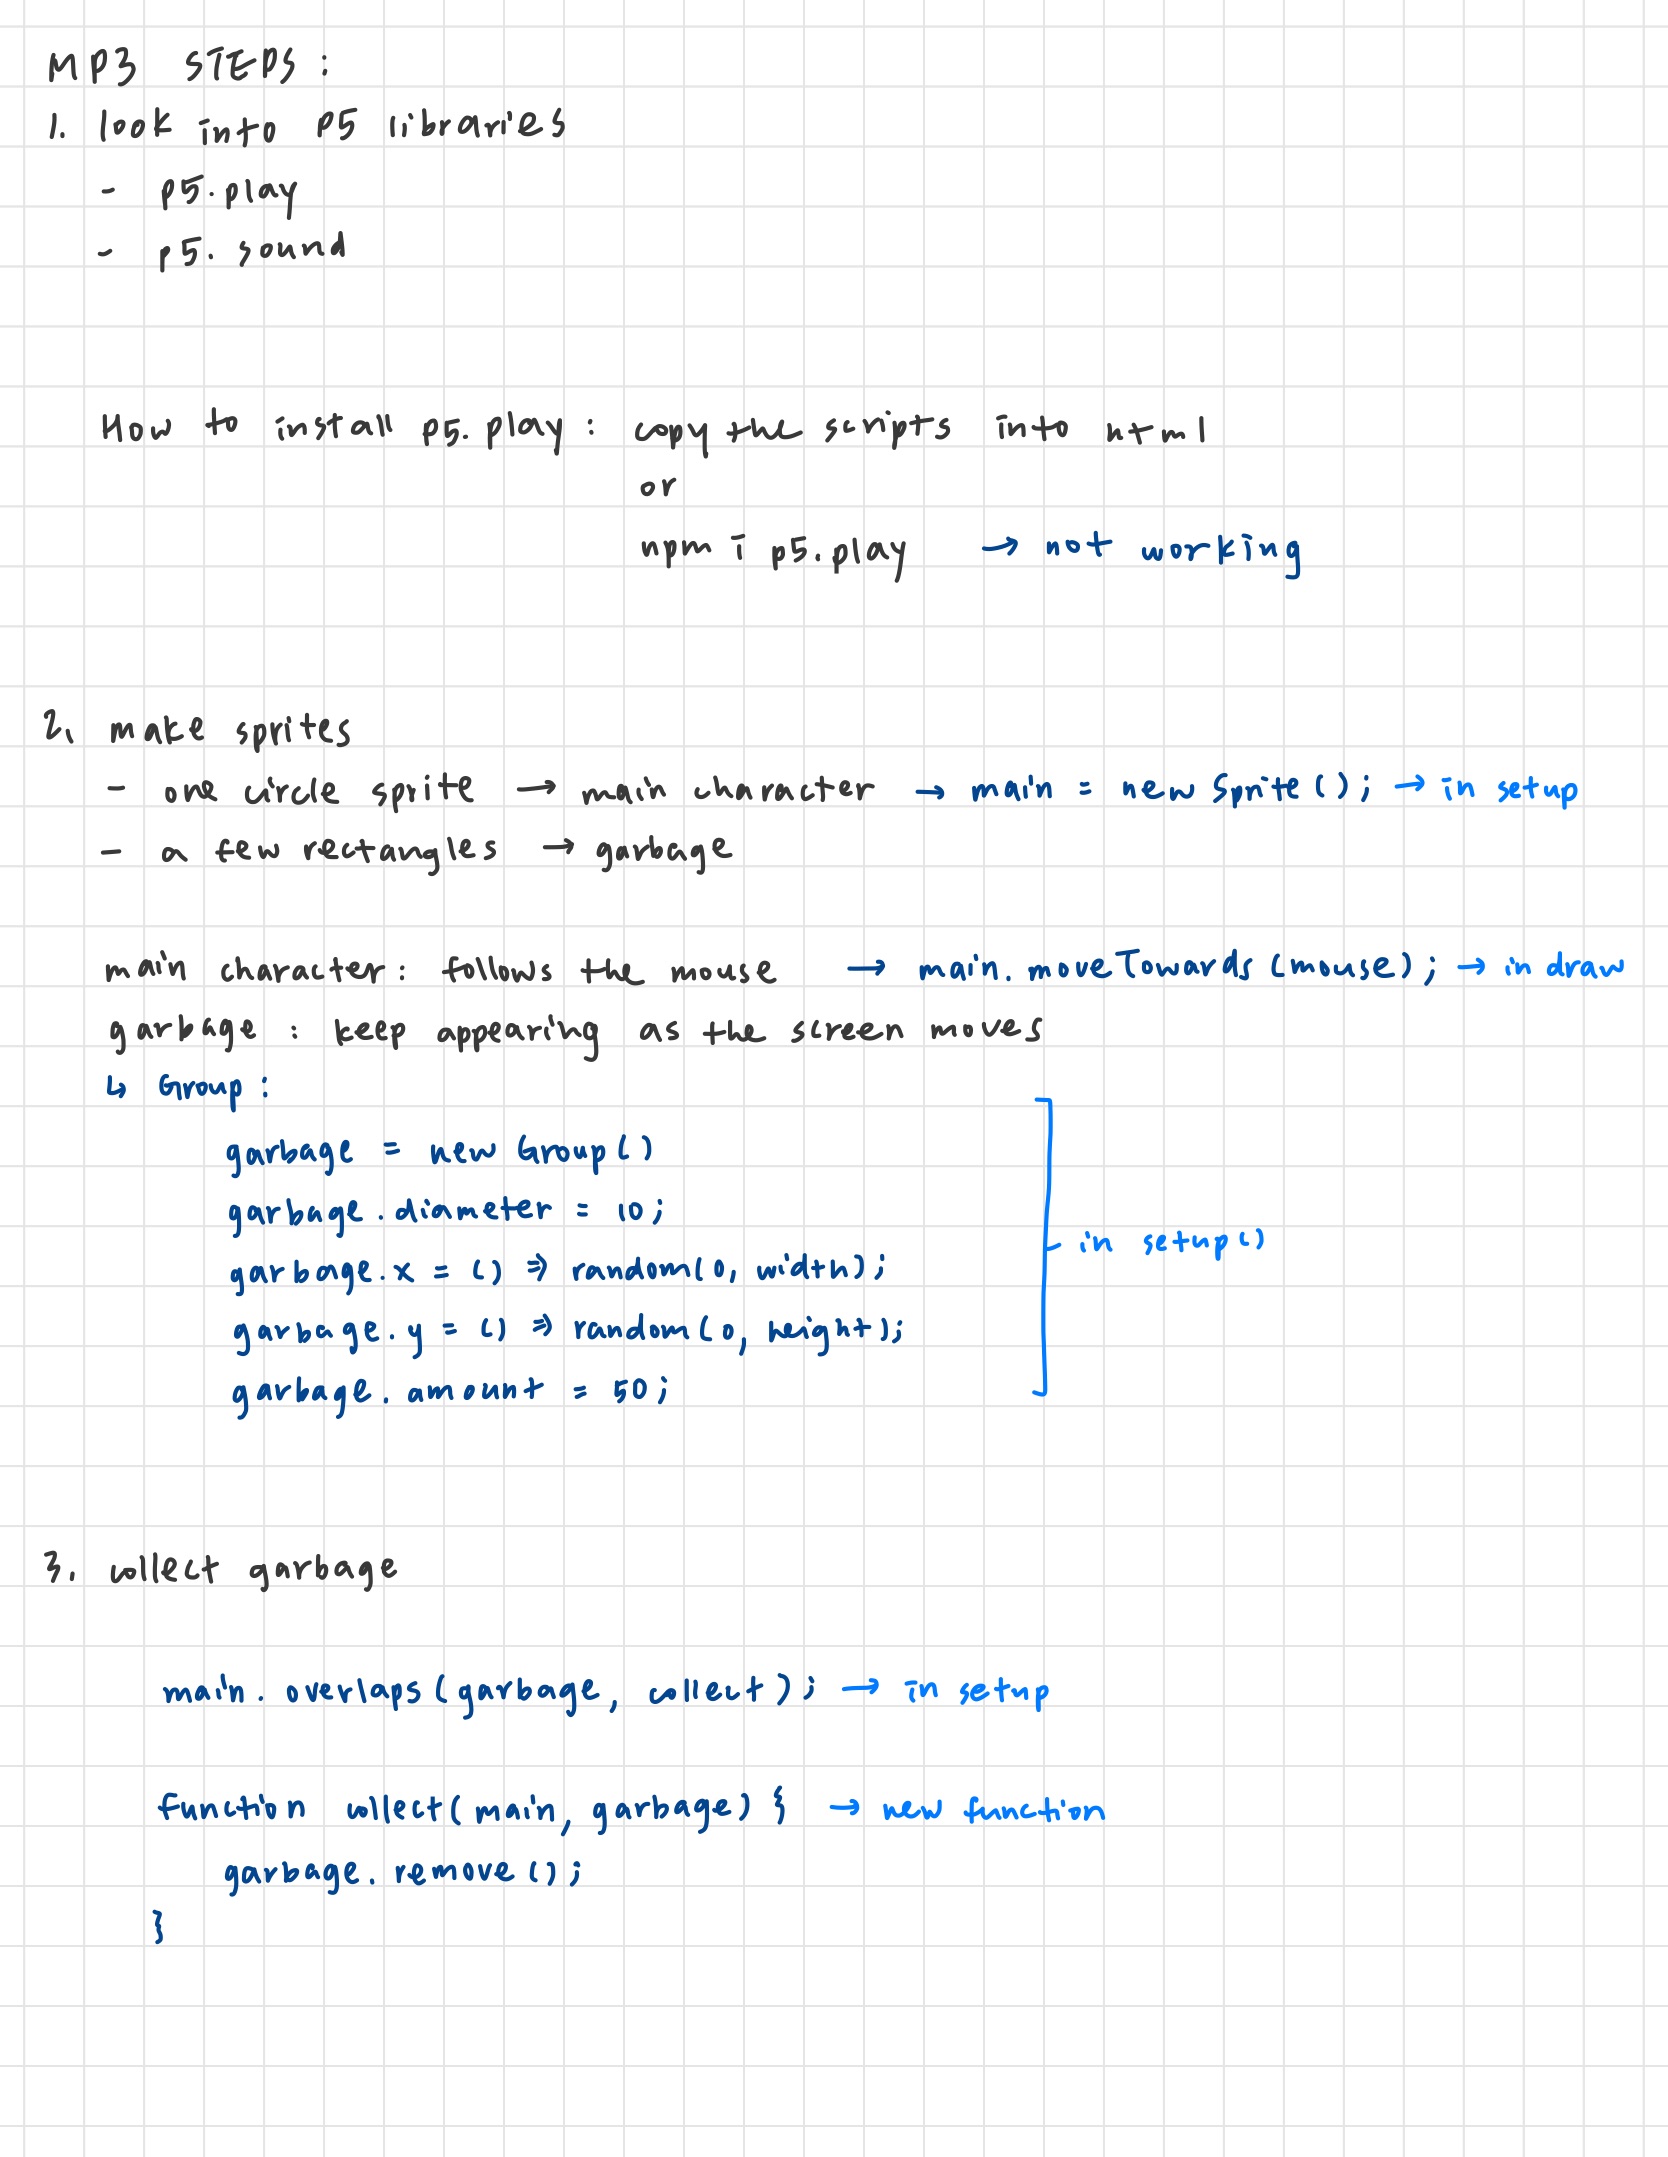 MP3 STEPS:
1. look into P5 libraries
- p5.play
- p5.sound
How to install p5.play: copy the scripts into html
or
npm i p5.play → not working
2. make sprites
- one circle sprite → main character → main = new Sprite(); → in setup
- a few rectangles → garbage
main character: follows the mouse → main.moveTowards(mouse); → in draw
garbage: keep appearing as the screen moves
↳ Group:
garbage = new Group()
garbage.diameter = 10;
garbage.x = () => random(0, width);
garbage.y = () => random(0, height);
garbage.amount = 50;
in setup()
3. collect garbage
main.overlaps(garbage, collect); → in setup
function collect(main, garbage) { → new function
garbage.remove();
}